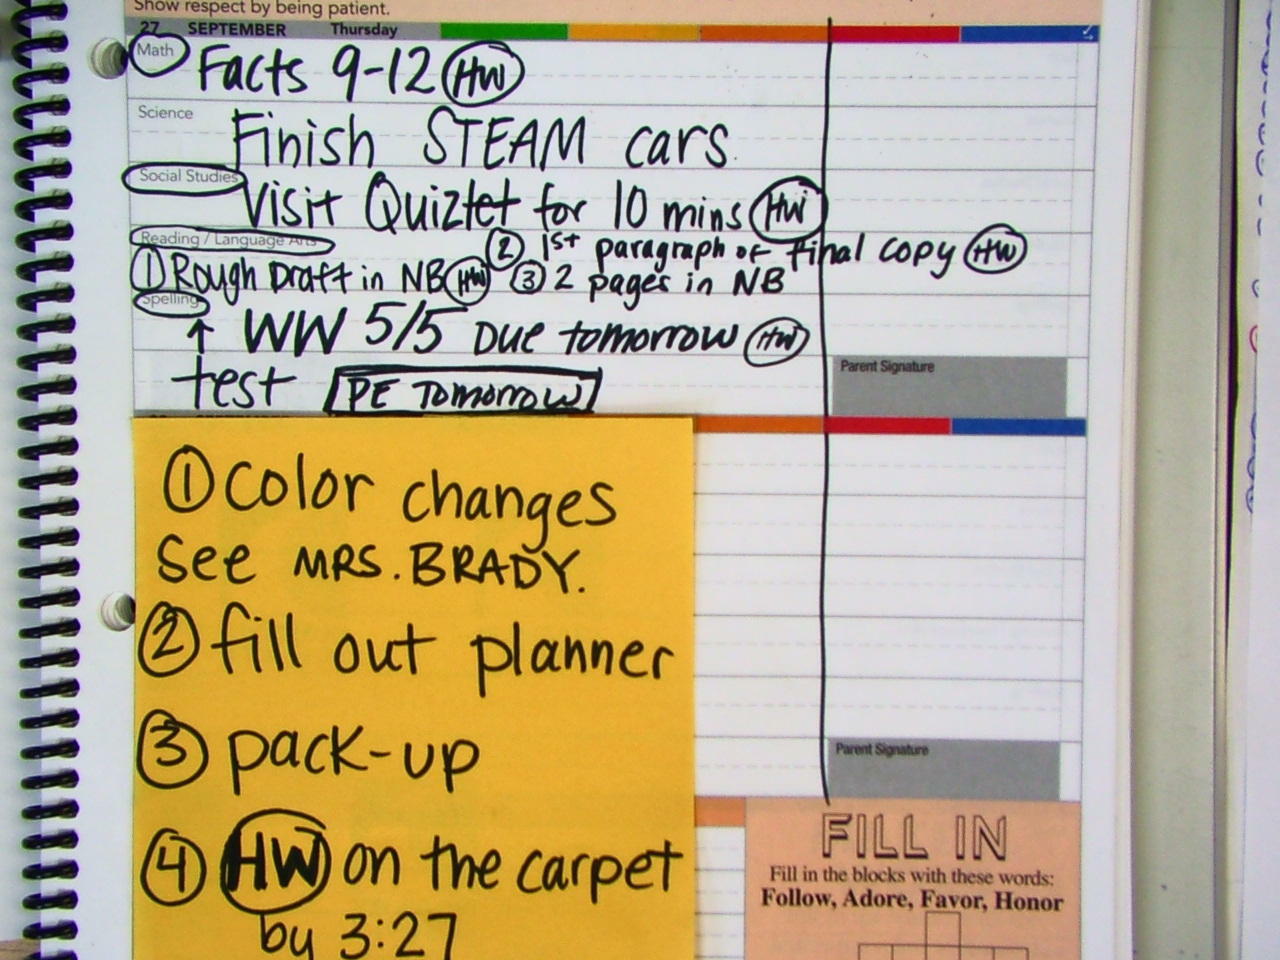 Show respect by being patient.
27 SEPTEMBER Thursday
Math
Facts 9-12 HW
Science
Finish STEAM cars.
Social Studies
Visit Quizlet for 10 mins HW
Reading / Language Arts
① Rough Draft in NB HW ② 1st paragraph of final copy HW
③ 2 pages in NB
Spelling
↑ WW 5/5 Due tomorrow HW
test PE Tomorrow
Parent Signature
① color changes
see MRS. BRADY.
② fill out planner
③ pack-up
④ HW on the carpet
by 3:27
Parent Signature
FILL IN
Fill in the blocks with these words:
Follow, Adore, Favor, Honor